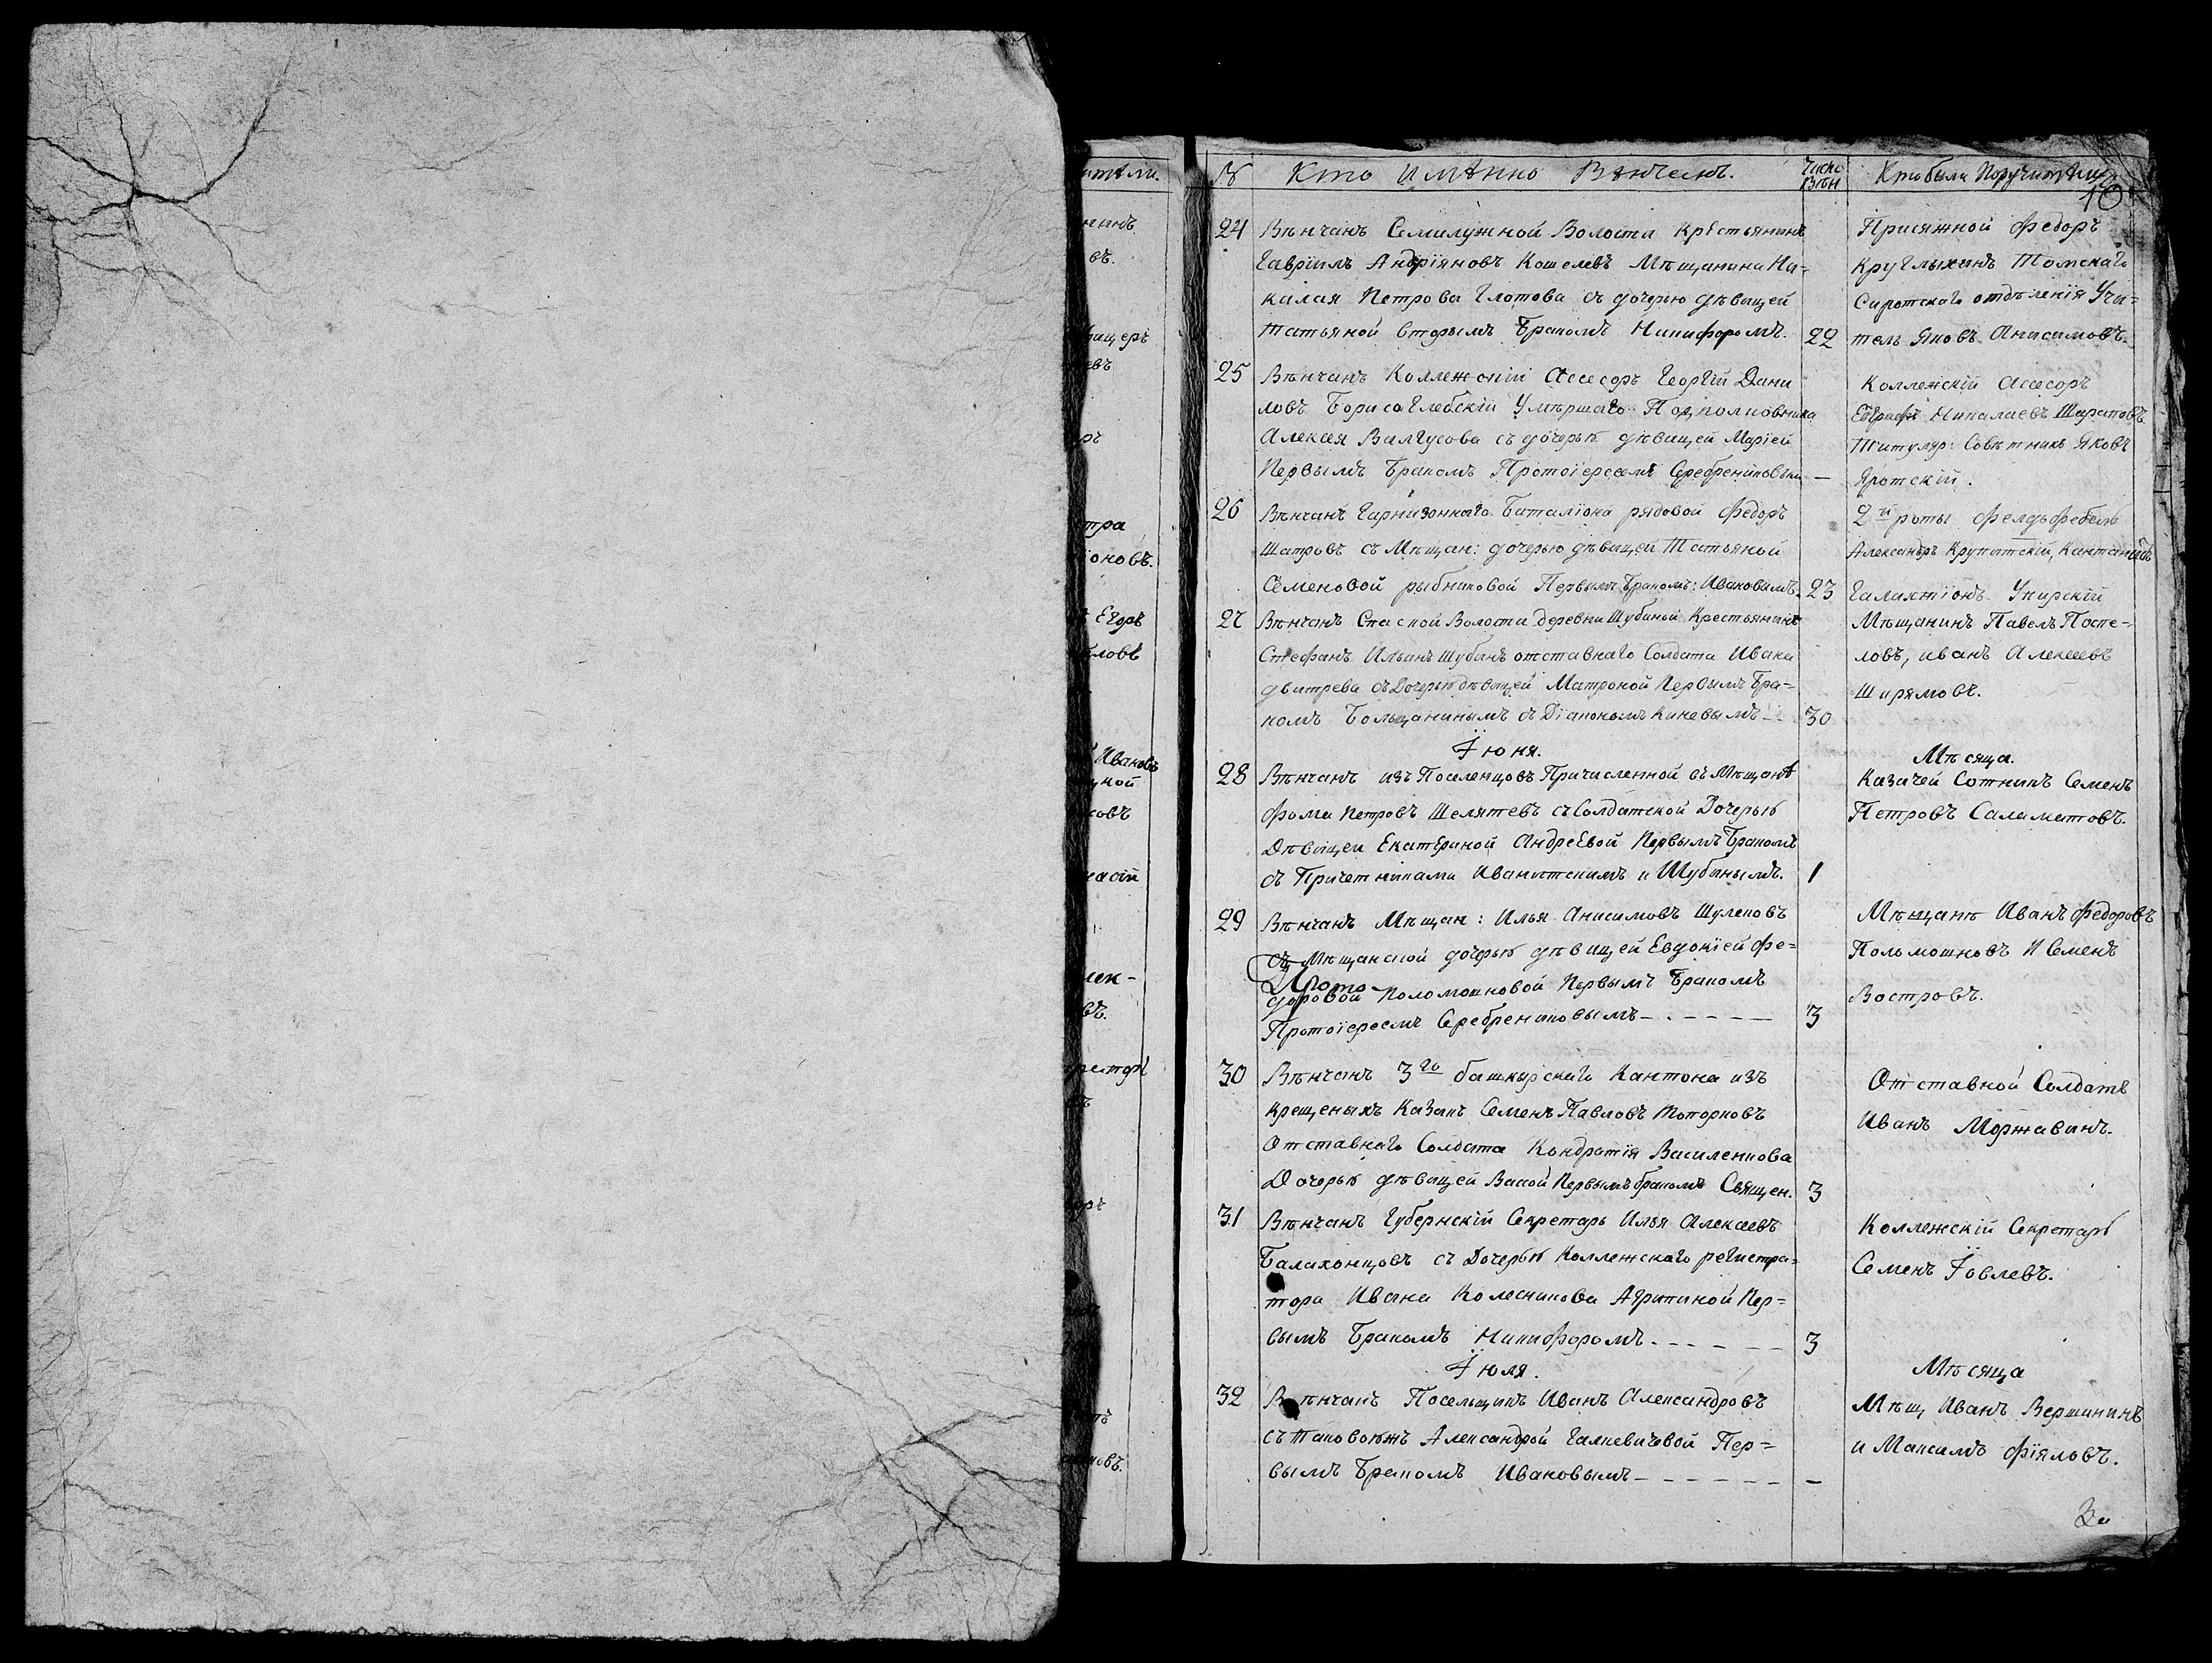 № Кто имѣнно Вѣнченъ. Число Вѣн Кто были Поручители
10
24 Вѣнчанъ Семилужной Волости крестьянинъ
Гаврiилъ Андрiяновъ Кошелевъ Мѣщанина Ни-
калая Петрова Глотова съ дочерью дѣвицей
Татьяной вторымъ Бракомъ Никифоромъ. 22
Присяжной Федоръ
Круглыхинъ Томскаго
Сиротскаго отдѣленiя Учи-
тель Яковъ Анисимовъ.
25 Вѣнчанъ Коллежскiй Ассесоръ Георгiй Дани
ловъ Борисоглебскiй Умершаго Подполковника
Алексея Валгусова съ дочерью дѣвицей Марiей
Первымъ Бракомъ Протоiереемъ Серебрениковымъ —
Коллежскiй Ассесоръ
Евграфъ Николаевъ Шараповъ
Титуляр: Совѣтникъ Яковъ
Яротскiй.
26 Вѣнчанъ Гарнизоннаго Баталiона рядовой Федоръ
Шатровъ съ Мѣщан: дочерью дѣвицей Татьяной
Семеновой рыбниковой Первымъ Бракомъ: Ивановымъ. 23
2й роты фелдьфебель
Александръ Крупитскiй,
Галактiонъ
27 Вѣнчанъ Спаской Волости деревни Шубиной Крестьянинъ
Стефанъ Ильинъ Шубинъ отставнаго Солдата Ивана
дмитрева съ Дочерью дѣвицей Матроной Первымъ Бра-
комъ Большанинымъ съ Дiакономъ Киневымъ — 30
Мѣщанинъ Павелъ Поспе-
ловъ, иванъ Алексеевъ
Ширямовъ.
Iюня. Мѣсяца.
28 Вѣнчанъ изъ Поселенцовъ Причисленной въ Мѣщанѣ
фома Петровъ Шелятевъ съ Солдатской Дочерью
Дѣвицеи Екатериной Андреевой Первымъ Бракомъ
съ Причетниками Иваницкимъ и Шубинымъ. 1
Казачей Сотникъ Семенъ
Петровъ Саламатовъ.
29 Вѣнчанъ Мѣщан: Илья Анисимовъ Шулековъ
съ Мѣщанской дочерью дѣвицей Евдокiей Фе-
Прото-
доровой Поломошновой Первымъ Бракомъ
Протоiереемъ Серебрениковымъ — 3
Мѣщанѣ Иванъ Федоровъ
Поломошновъ И Семенъ
Востровъ.
30 Вѣнчанъ 3го башкирскаго Кантона изъ
крещеныхъ Казакъ Семенъ Павловъ Топорковъ
Отставнаго Солдата Кондратiя Василенкова
Дочерью дѣвицей Вассой Первымъ бракомъ Священ. 3
Отставной Солдатъ
Иванъ Моржавинъ.
31 Вѣнчанъ Губернскiй Секретарь Илья Алексеевъ
Балахонцовъ съ Дочерью Коллежскаго регистра-
тора Ивана Колесникова Агрипиной Пер-
вымъ Бракомъ Никифоромъ. — 3
Коллежскiй Секретарь
Семенъ Iовлевъ.
Iюля. Мѣсяца
32 Вѣнчанъ Поселыцикъ Иванъ Александровъ
съ таковоюжъ Александрой Галкевичевой Пер-
вымъ Бракомъ Ивановымъ — —
Мѣщ Иванъ Вершининъ
и Максимъ Фiяловъ.